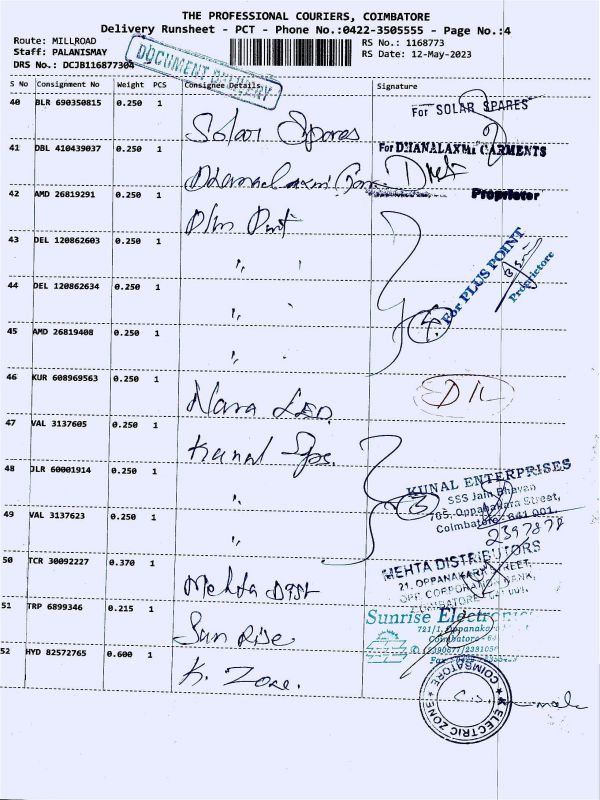 THE PROFESSIONAL COURIERS, COIMBATORE
Delivery Runsheet - PCT - Phone No.:0422-3505555 - Page No.:4
Route: MILLROAD
RS No.: 1168773
Staff: PALANISMAY
RS Date: 12-May-2023
DRS No.: DCJB116877304
DOCUMENT DELIVERY
S No Consignment No Weight PCS Consignee Details Signature
40 BLR 690350815 0.250 1 Solar Spares For SOLAR SPARES
41 DBL 410439037 0.250 1 Dhanalaxmi For DHANALAXMI GARMENTS
Proprietor
42 AMD 26819291 0.250 1
43 DEL 120862603 0.250 1 "
For PLUS POINT
Proprietore
44 DEL 120862634 0.250 1 "
45 AMD 26819408 0.250 1 "
46 KUR 608969563 0.250 1 Nava
47 VAL 3137605 0.250 1 Kunal
48 JLR 60001914 0.250 1 "
KUNAL ENTERPRISES
SSS Jain Bhavan
705, Oppanakara Street,
Coimbatore 641 001.
49 VAL 3137623 0.250 1 "
2397877
50 TCR 30092227 0.370 1 Mehta Dist
MEHTA DISTRIBUTORS
21, OPPANAKARA STREET,
OPP. CORPORATION BANK,
COIMBATORE
51 TRP 6899346 0.215 1 Sun Rise
Sunrise Electronics
721/1, Oppanakara
Coimbatore
52 HYD 82572765 0.600 1 K. Zone.
K ELECTRIC ZONE
COIMBATORE